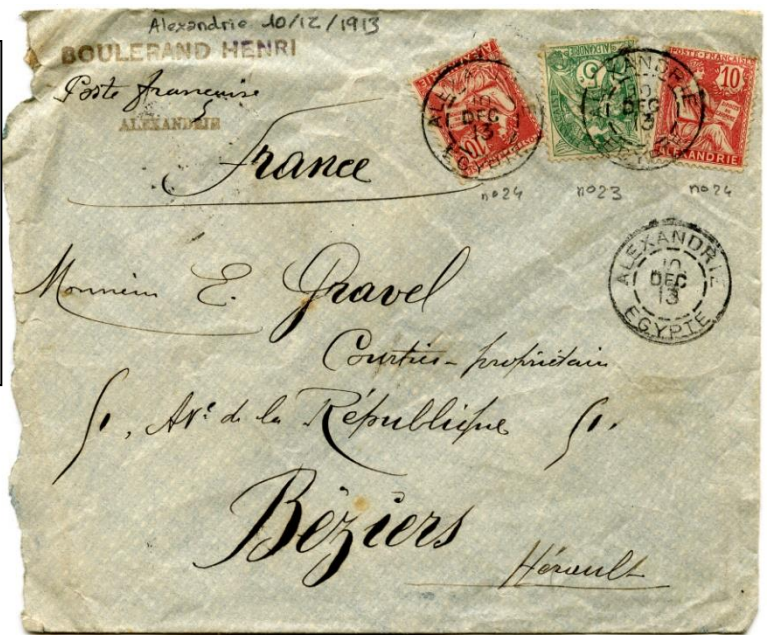 Alexandrie 10/12/1913
BOULERAND HENRI
Poste française
ALEXANDRIE
France
POSTE FRANÇAISE
10
ALEXANDRIE
5
ALEXANDRIE
10
DEC
13
EGYPTE
no 24
no 23
no 24
ALEXANDRIE
10
DEC
13
EGYPTE
Monsieur E. Gravel
Courtier-propriétaire
51, Ave de la République 51.
Béziers
Hérault